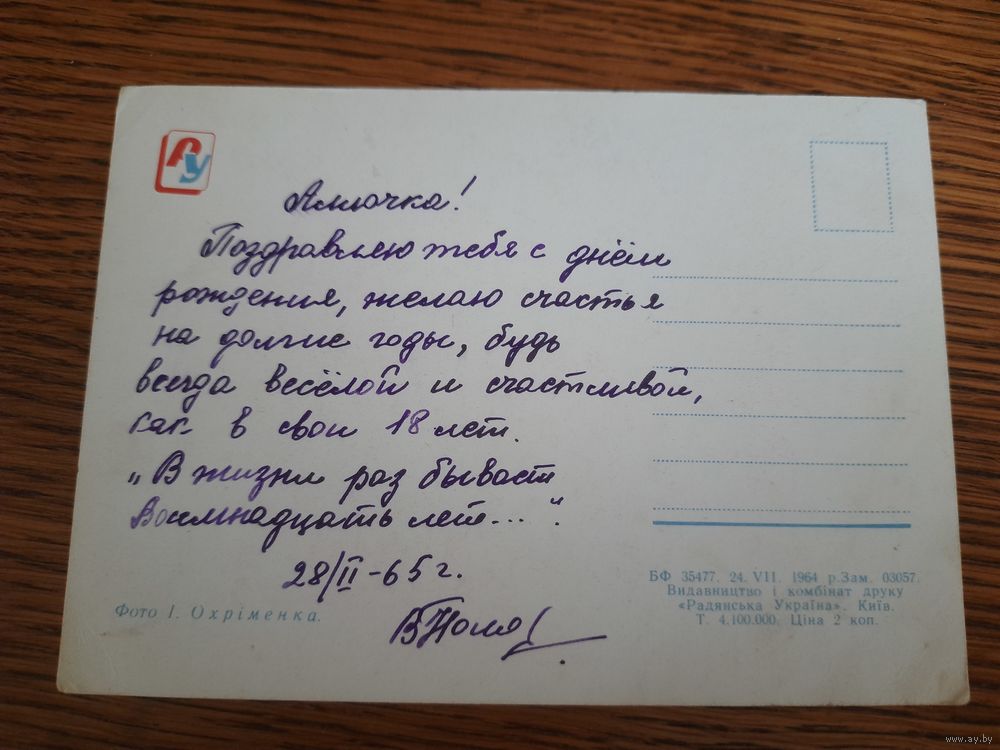 РУ
Аллочка!
Поздравляю тебя с днём
рождения, желаю счастья
на долгие годы, будь
всегда весёлой и счастливой,
как в свои 18 лет.
„В жизни раз бывает
Восемнадцать лет...“.
28/II-65 г.
Фото І. Охріменка.
БФ 35477. 24. VII. 1964 р. Зам. 03057.
Видавництво і комбінат друку
«Радянська Україна». Київ.
Т. 4.100.000. Ціна 2 коп.
www.ay.by